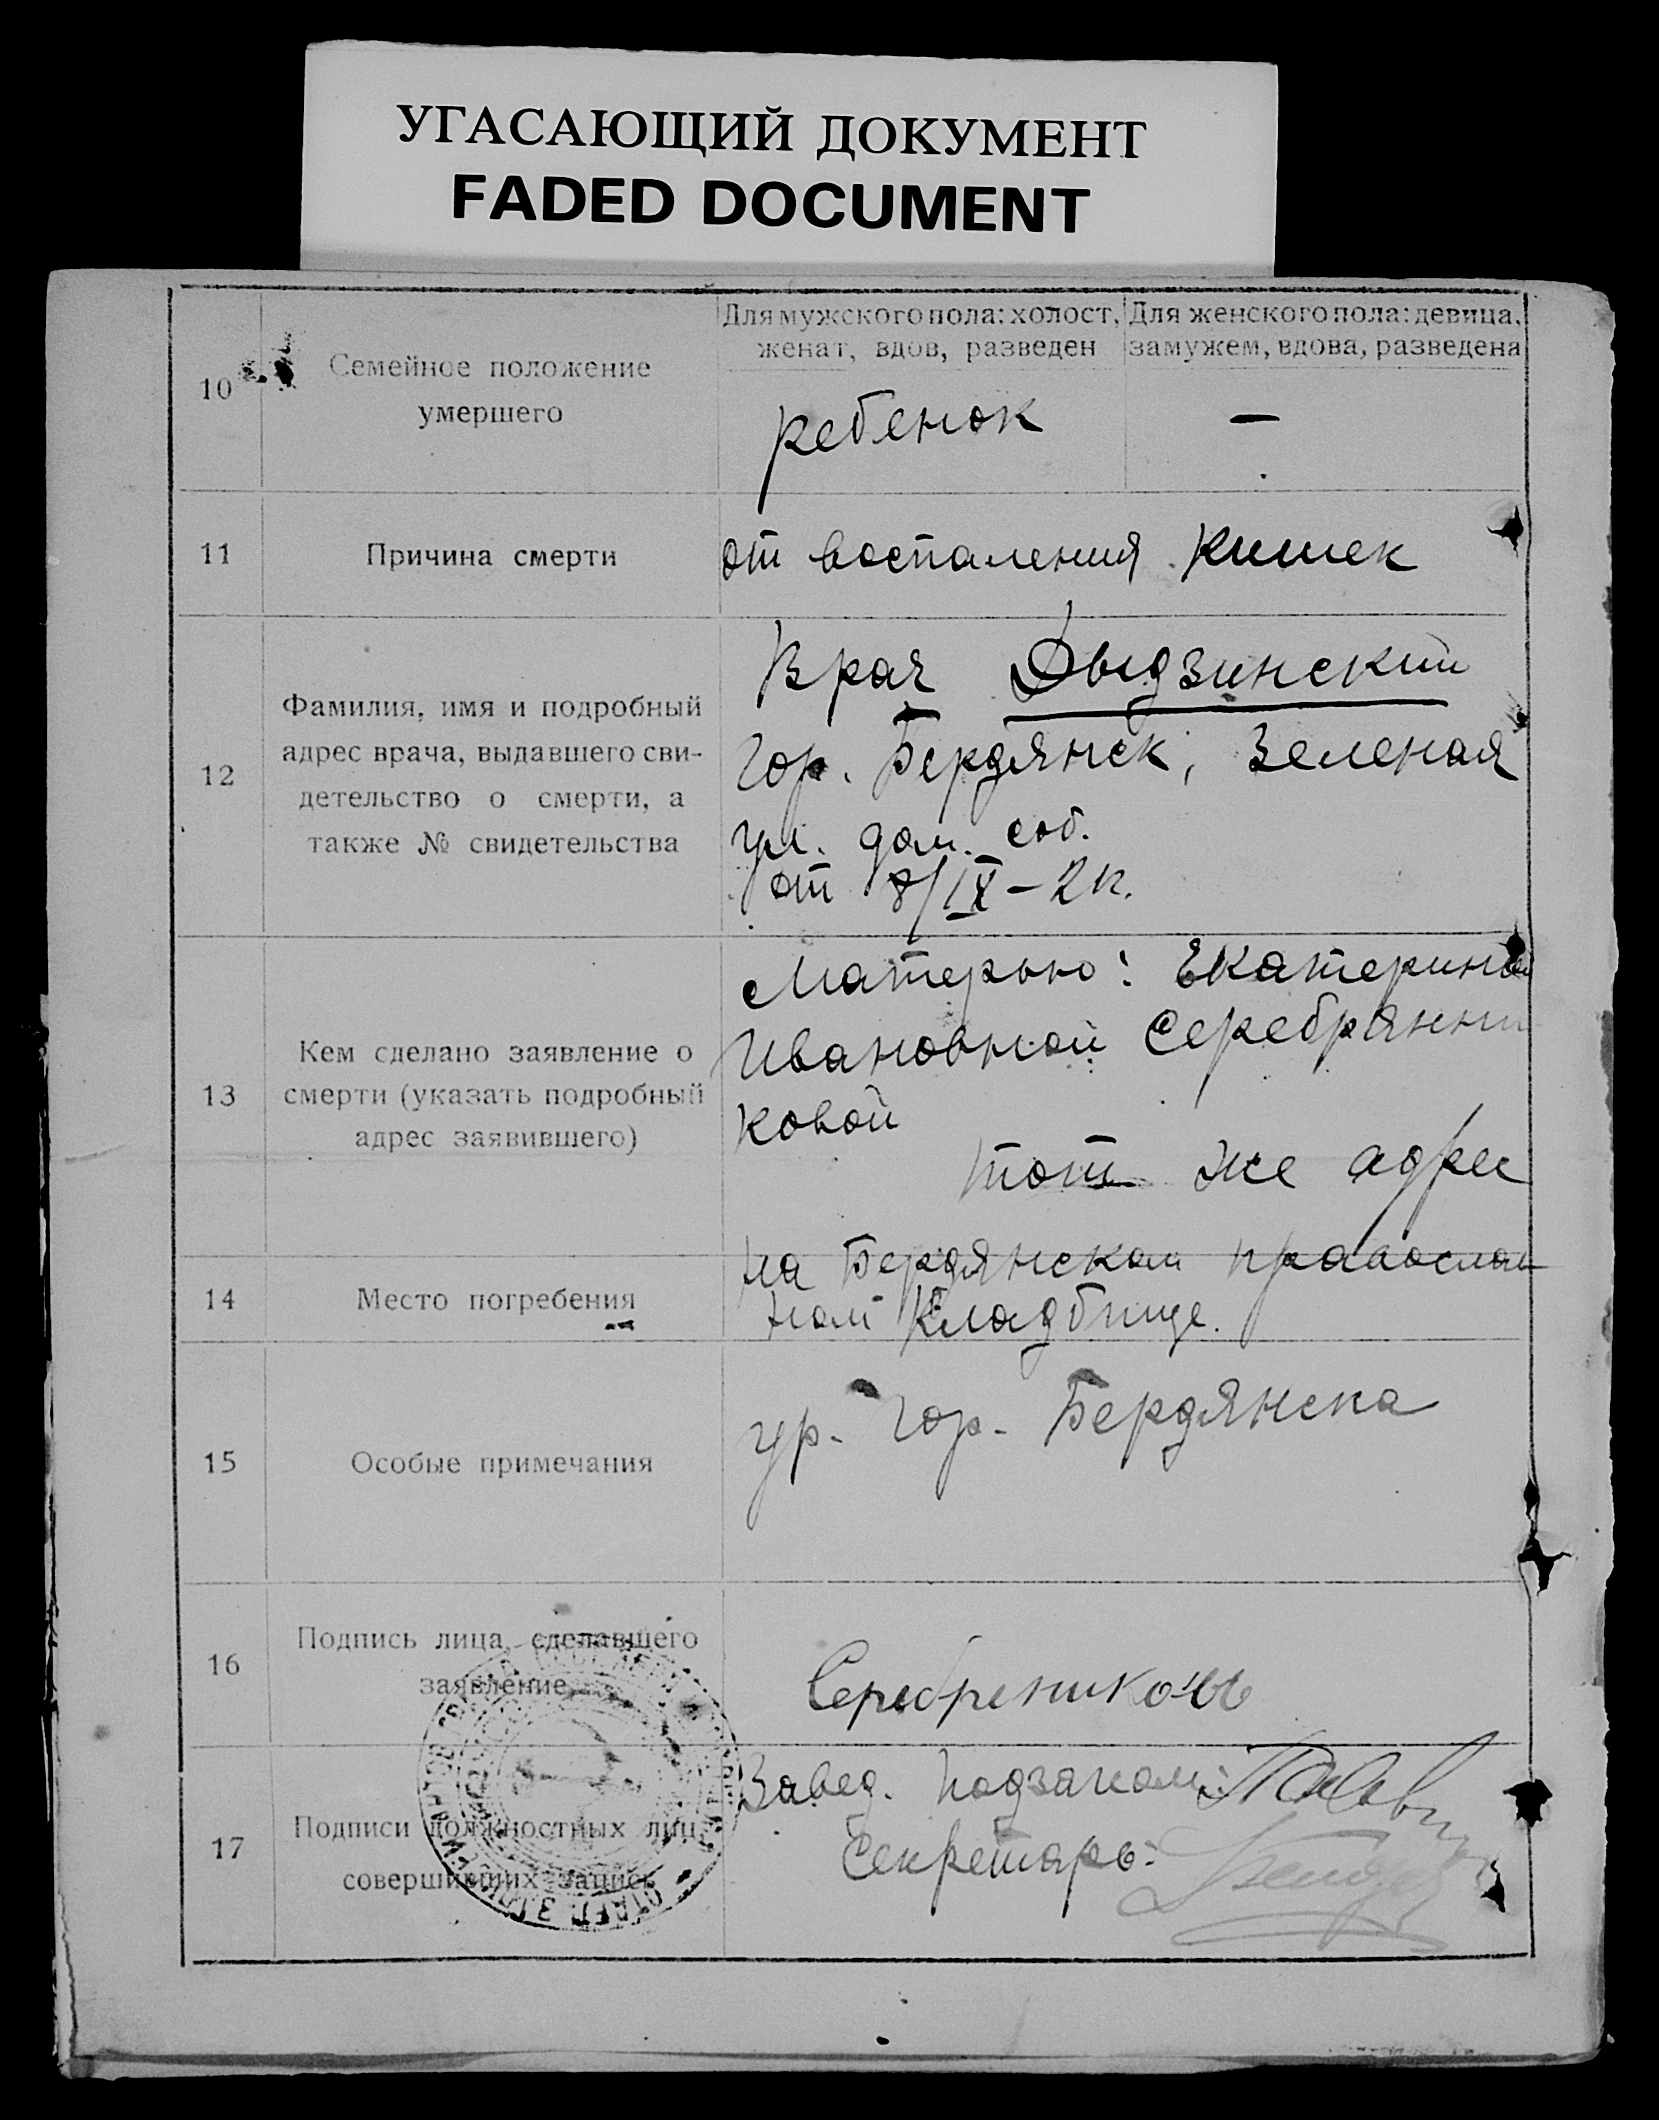 УГАСАЮЩИЙ ДОКУМЕНТ
FADED DOCUMENT
10
Семейное положение
умершего
Для мужского пола: холост,
женат, вдов, разведен
Для женского пола: девица,
замужем, вдова, разведена
ребенок
—
11
Причина смерти
от воспаления кишек
12
Фамилия, имя и подробный
адрес врача, выдавшего сви-
детельство о смерти, а
также № свидетельства
Врач Дыдзинский
гор. Бердянск, Зеленая
ул. дом. соб.
от 8/IX – 2
13
Кем сделано заявление о
смерти (указать подробный
адрес заявившего)
Матерью: Екатериной
Ивановной Серебрянни
ковой
тот же адрес
14
Место погребения
на Бердянском православ
ном кладбище.
15
Особые примечания
ур. гор. Бердянска
16
Подпись лица, сделавшего
заявление
17
Подписи должностных лиц,
совершивших запись
Завед. Подзагсом:
Секретарь: